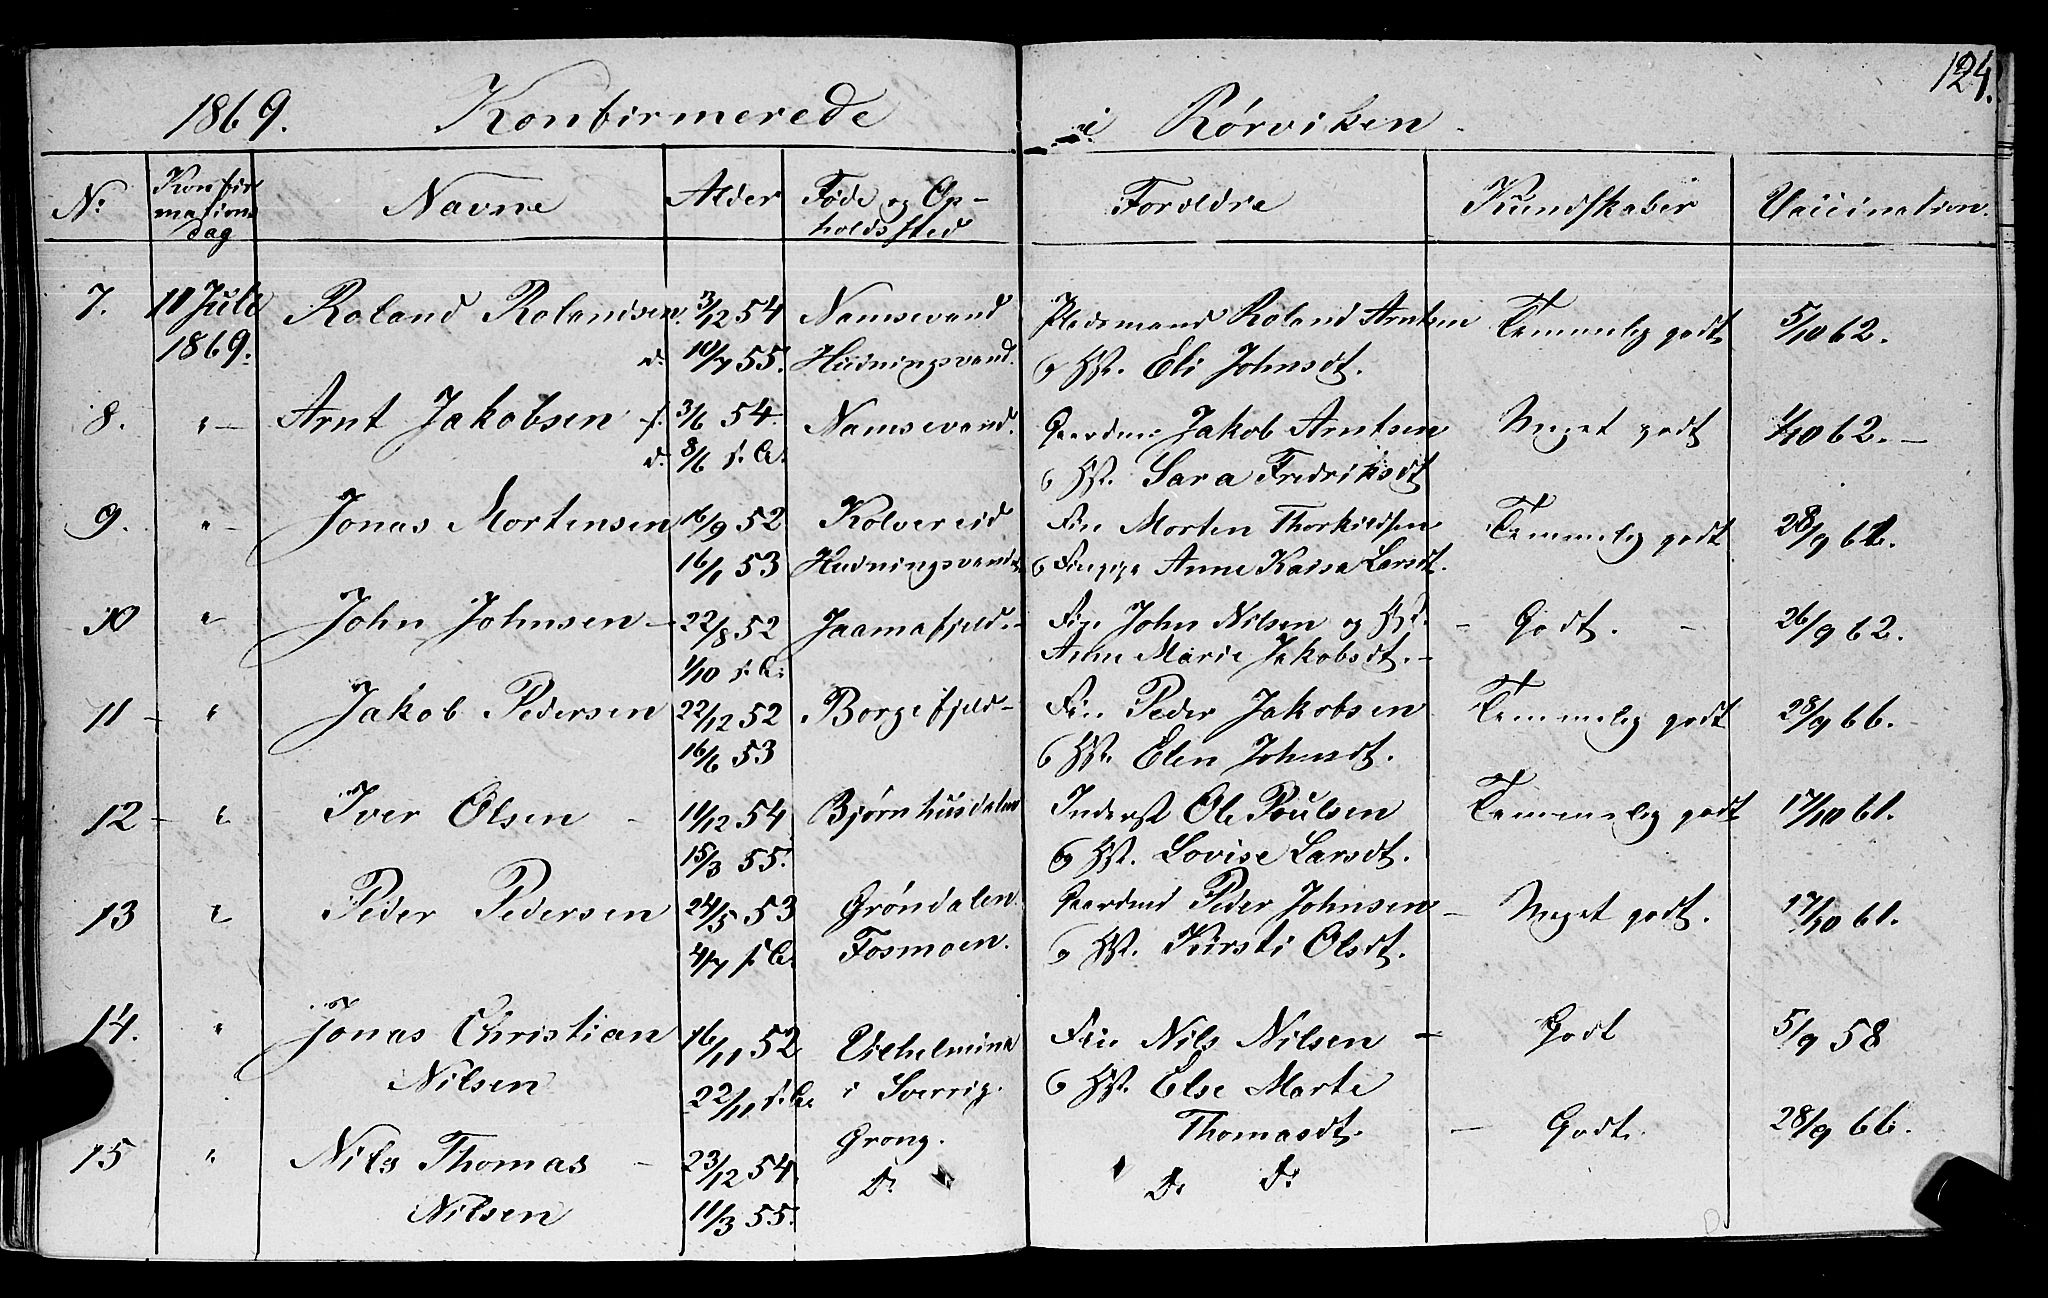 124.
1869. Konfirmerede i Rørviken.
N: Konfir Navne Alder Føde og Op- Forældre Kundskaber Vaccination.
mations holdssted
dag
7. 11 Juli Roland Rolandsen. 3/12 54 Namsvand Pladsmand Roland Arntsen Temmelig godt 5/10 62.
1869. d. 10/7 55. Hudningsvand. og Hst. Eli Johnsdt.
8. " Arnt Jakobsen f. 3/6 54. Namsvand. Gaardm: Jakob Arntsen Meget godt 1/10 62. –
d. 8/6 s. A. og Hst. Sara Fredriksdt
9. " Jonas Mortensen 16/9 52 Kolvereid Fin Morten Thorkildsen Temmelig godt 28/9 66.
16/1 53 Hudningsvand og Finpige Anne Kaisa Larsdt.
10 " John Johnsen – 22/8 52 Jaamafjeld. Fin John Nilsen og Hst. – Godt. – 26/9 62.
1/10 s. A. Anne Marie Jakobsdt. –
11 – " Jakob Pedersen 22/12 52 Borgefjeld – Fin Peder Jakobsen Temmelig godt 28/9 66.
16/6 53 og Hst. Elen Johnsdt.
12 – " Iver Olsen – 11/12 54 Bjørnhusdalen Inderst Ole Poulsen Temmelig godt 17/10 61.
15/3 55. og Hst. Lovise Larsdt.
13 " Peder Pedersen 24/5 53 Grøndalen Gaardmd Peder Johnsen – Meget godt. 17/10 61.
4/7 s. A. Fosmoen. og Hst. Kirsti Olsdt.
14. " Jonas Christian 16/11 52 Vilhelmina Fin Nils Nilsen – Godt 5/9 58
Nilsen 22/11 s. A. i Sverrig. og Hst. Else Marte
Thomasdt.
15 " Nils Thomas – 23/12 54. Grong. D: D: – Godt. 28/9 66.
Nilsen 11/3 55. D: